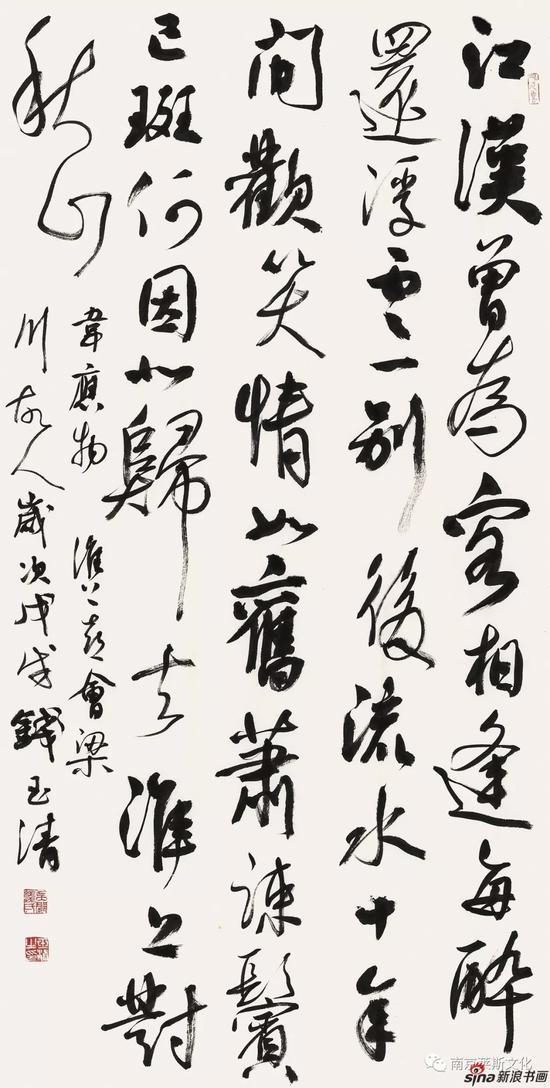 江漢曾為客相逢每醉
還浮雲一別後流水十年
間歡笑情如舊蕭疎鬢
已斑何因北歸去淮上對
秋山
韋應物淮上喜會梁
川故人歲次戊戌錢玉清
南京莱斯文化
sina新浪书画